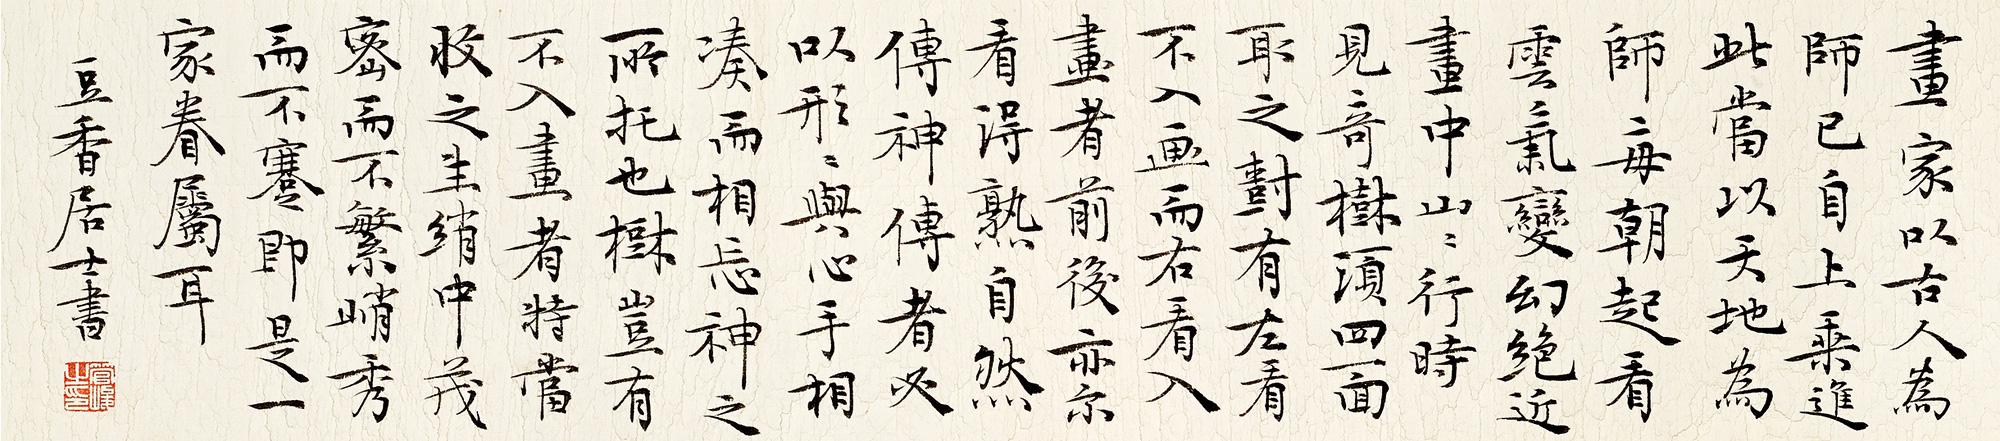 畫家以古人為
師已自上乗進
此當以天地為
師每朝起看
雲氣變幻絶近
畫中山〻行時
見奇樹須四面
取之樹有左看
不入画而右看入
畫者前後亦尔
看得熟自然
傳神傳者必
以形〻與心手相
湊而相忘神之
所托也樹豈有
不入畫者特當
收之生綃中茂
密而不繁峭秀
而不蹇即是一
家眷屬耳
豆香居士書